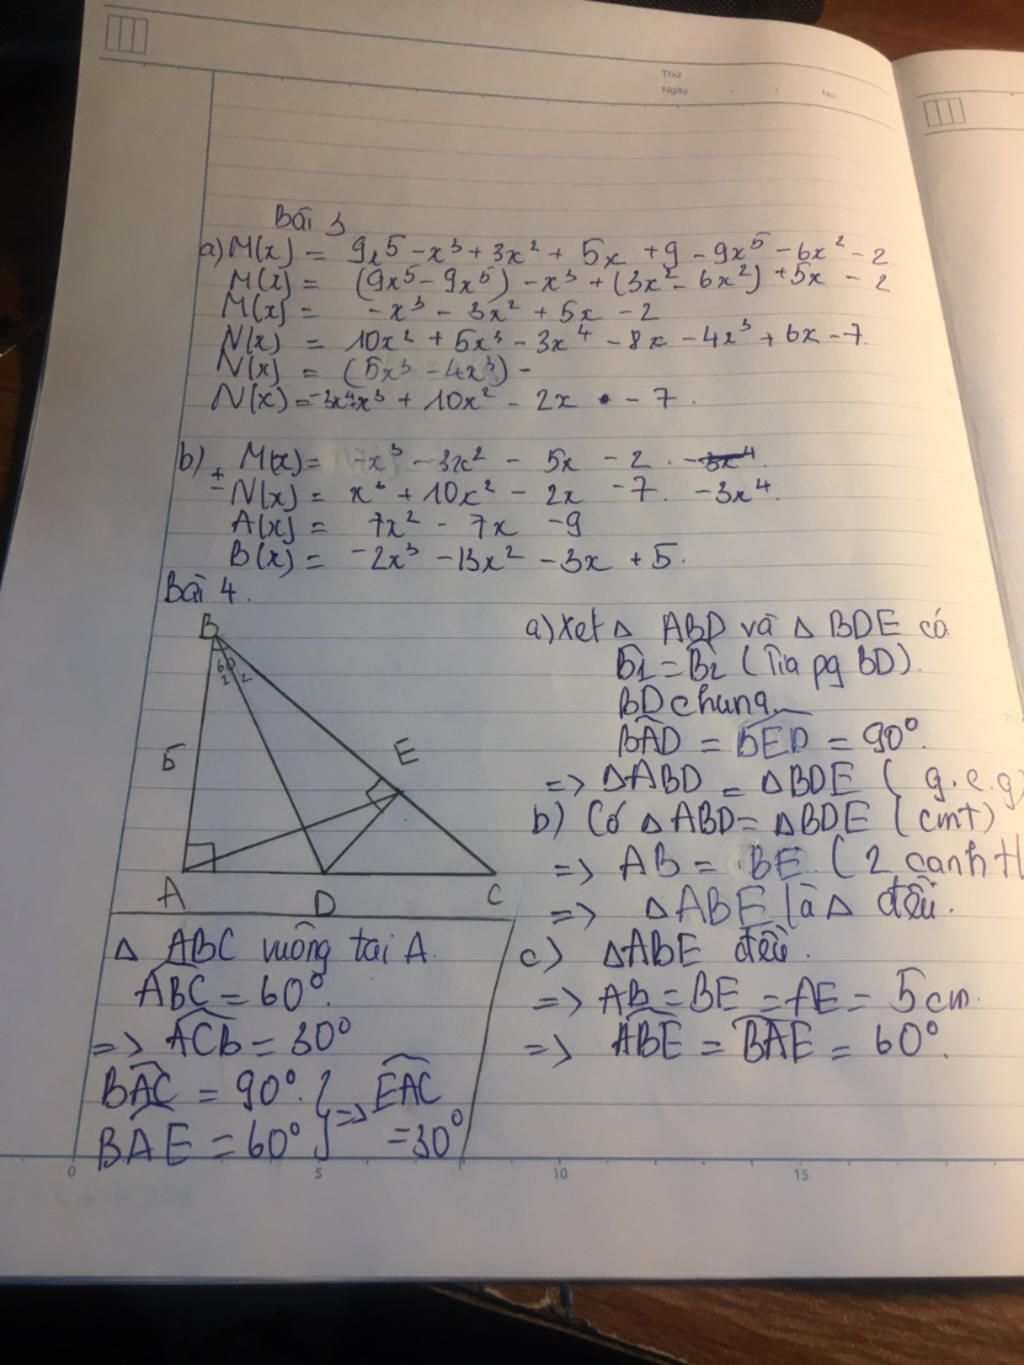 Thứ
Ngày
No
Bài 3
a) M(x) = 9x⁵ - x³ + 3x² + 5x + 9 - 9x⁵ - 6x² - 2
M(x) = (9x⁵ - 9x⁵) - x³ + (3x² - 6x²) + 5x - 2
M(x) = -x³ - 3x² + 5x - 2
N(x) = 10x² + 5x³ - 3x⁴ - 8x - 4x³ + 6x - 7
N(x) = (5x³ - 4x³) -
N(x) = + 10x² - 2x - 7.
b) + M(x) = - 3x² - 5x - 2.
- N(x) = + 10x² - 2x - 7. - 3x⁴.
A(x) = 7x² - 7x - 9
B(x) = -2x³ - 13x² - 3x + 5.
Bài 4.
B
60
1 2
5
E
A
D
C
Δ ABC vuông tại A.
ABC = 60°.
=> ACB = 30°
BAC = 90°. } => EAC
BAE = 60° = 30°
a) Xét Δ ABD và Δ BDE có
B1 = B2 (Tia pg BD).
BD chung
BAD = BED = 90°.
=> ΔABD = ΔBDE ( g.c.g)
b) Có ΔABD = ΔBDE (cmt)
=> AB = BE. (2 cạnh t
=> ΔABE là Δ đều.
c) ΔABE đều.
=> AB = BE = AE = 5cm.
=> ABE = BAE = 60°.
0
5
10
15